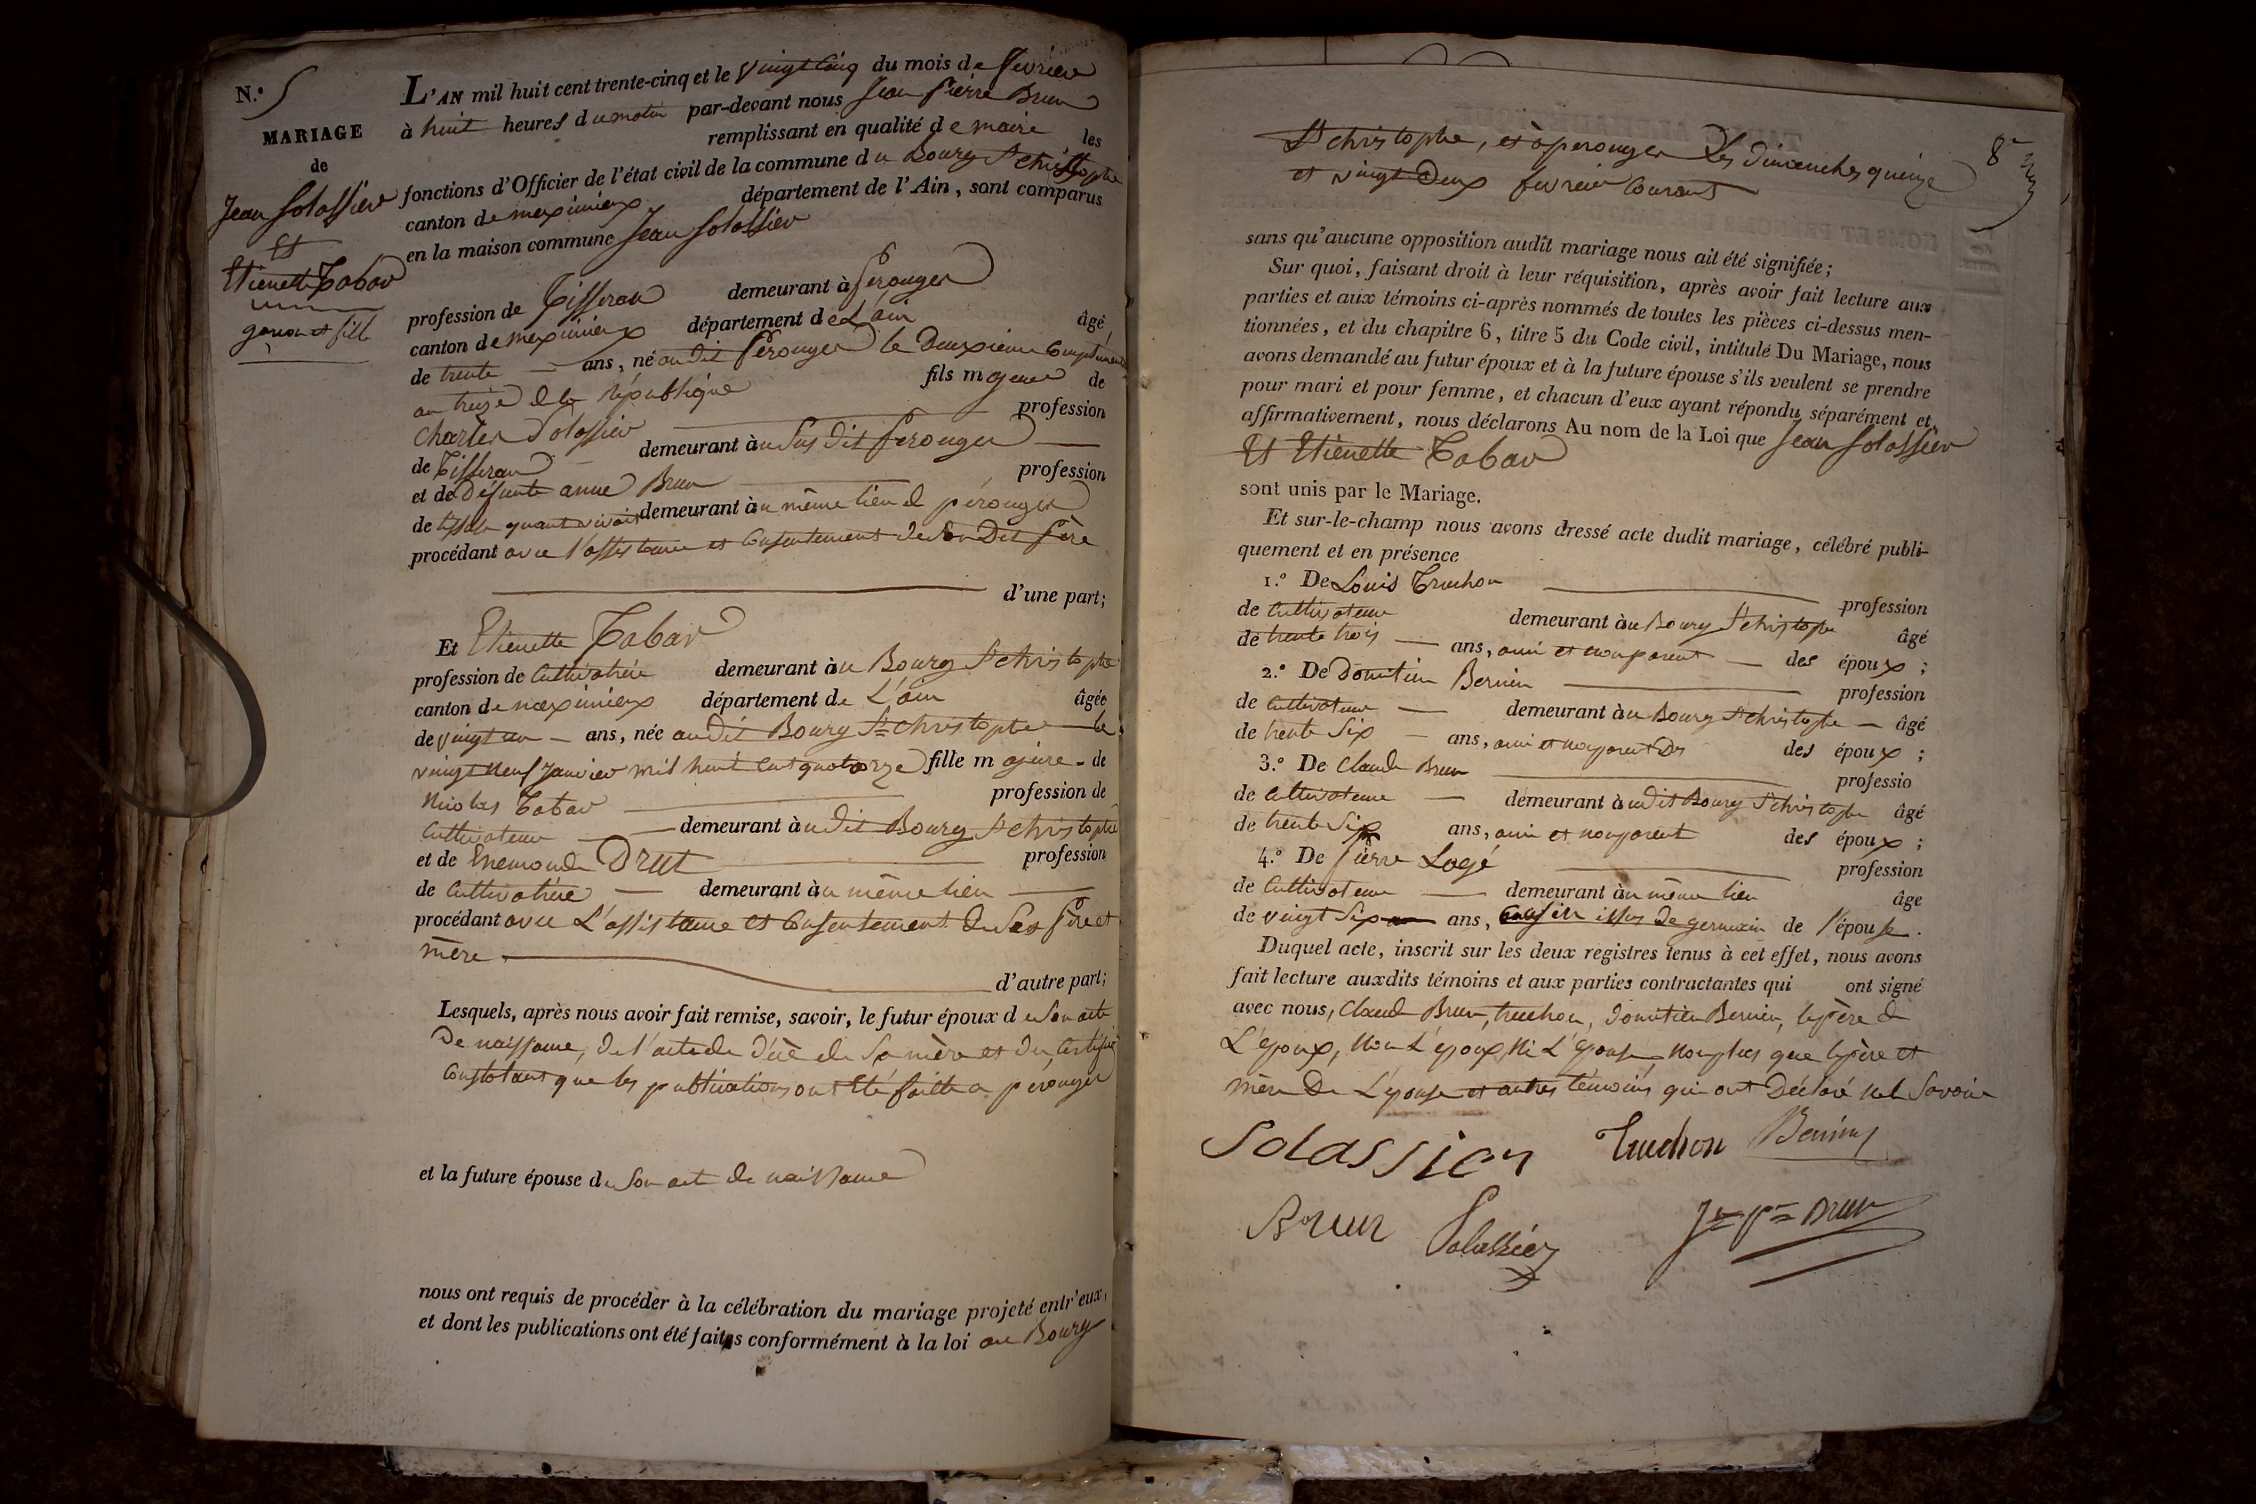 N.º 5
MARIAGE
de
Jean Solassier
Et
Etienette Tabar
garcon et fille
L'AN mil huit cent trente-cinq et le vingt cinq du mois de fevrier
à huit heures du matin par-devant nous Jean Pierre Brun
remplissant en qualité de maire les
fonctions d'Officier de l'état civil de la commune du Bourg St christophe
canton de meximieux département de l'Ain, sont comparus
en la maison commune Jean Solassier
profession de Tisseran demeurant à Pérouges
canton de meximieux département de L'ain âgé
de trente ans, né au dit Pérouges le Deuxieme Complimentaire
an treize de la république fils majeur de
Charles Solassier profession
de Tisseran demeurant au sus dit Perouges
et de Défunte anne Brun profession
de quant vivait demeurant au même lieu de pérouges
procédant avec l'assistance et Consentement de Son Dit Père
d'une part;
Et Etienette Tabar
profession de Cultivatrice demeurant au Bourg St christophe
canton de meximieux département de L'ain âgée
de vingt un ans, née audit Bourg St christophe le
vingt neuf janvier mil huit cent quatorze fille majeure de
Nicolas Tabar profession de
Cultivateur demeurant au dit Bourg St christophe
et de Enemonde Drut profession
de Cultivatrice demeurant au même lieu
procédant avec L'assistance et Consentement de Ses Père et
mère
d'autre part;
Lesquels, après nous avoir fait remise, savoir, le futur époux de Son acte
De naissance, de l'acte de décè de Sa mère et du Certificat
Constatant que les publications ont été faitte a pérouges
et la future épouse de Son acte de naissance
nous ont requis de procéder à la célébration du mariage projeté entr'eux,
et dont les publications ont été faites conformément à la loi au Bourg
St christophe, et à perouges Les dimanches quinze
et vingt Deux fevrier Courant
8
sans qu'aucune opposition audit mariage nous ait été signifiée;
Sur quoi, faisant droit à leur réquisition, après avoir fait lecture aux
parties et aux témoins ci-après nommés de toutes les pièces ci-dessus men-
tionnées, et du chapitre 6, titre 5 du Code civil, intitulé Du Mariage, nous
avons demandé au futur époux et à la future épouse s'ils veulent se prendre
pour mari et pour femme, et chacun d'eux ayant répondu séparément et
affirmativement, nous déclarons Au nom de la Loi que Jean Solassier
Et Etienette Tabar
sont unis par le Mariage.
Et sur-le-champ nous avons dressé acte dudit mariage, célébré publi-
quement et en présence
1.º De Louis Truchon profession
de Cultivateur demeurant au Bourg St christophe âgé
de trente trois ans, ami et non parent des époux;
2.º De Domitien Bernin profession
de Cultivateur demeurant au Bourg St christophe âgé
de trente Six ans, ami et non parent Des des époux;
3.º De Claude Brun professio
de Cultivateur demeurant au dit Bourg St christophe âgé
de trente Six ans, ami et non parent des époux;
4.º De Pierre Logé profession
de Cultivateur demeurant au même lieu âgé
de vingt Six ans, Cousin issus de germain de l'épouse.
Duquel acte, inscrit sur les deux registres tenus à cet effet, nous avons
fait lecture auxdits témoins et aux parties contractantes qui ont signé
avec nous, Claude Brun, truchon, Domitien Bernin, le père de
L'époux, Non L'époux, Ni L'épouse, Non plus que le père et
mère De L'épouse et autres témoins qui ont Déclaré ne le Savoir
Solassier Truchon Bernin
Brun Solassier Jn Pre Brun